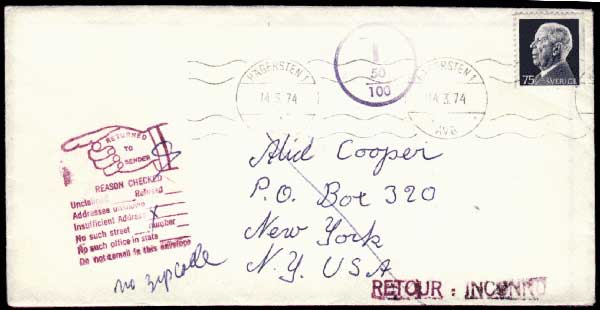 HÄGERSTEN 1
14.3.74
T
50
100
HÄGERSTEN 1
14.3.74
AVG
75 SVERIGE
RETURNED
TO
SENDER
REASON CHECKED
Unclaimed Refused
Addressee unknown
Insufficient Address x
No such street number
No such office in state
Do not remail in this envelope
no zipcode
Alid Cooper
P.O. Box 320
New York
N.Y. USA
RETOUR : INCONNU